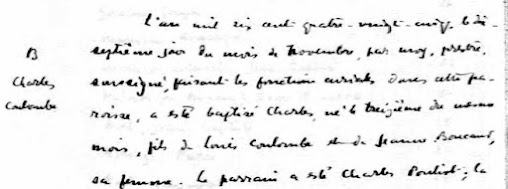 L'an mil six cent quatre-vingt-cinq, le di-
septième jour du mois de Novembre, par moy, prestre,
B
soussigné faisant les fonction curiales dans cette pa-
Charles
Coulombe
roisse, a esté baptisé Charles, né le treizième du mesme
mois, fils de Louis Coulombe et de Jeanne Boucaud,
sa femme. Le parrain a esté Charles Pouliot; la